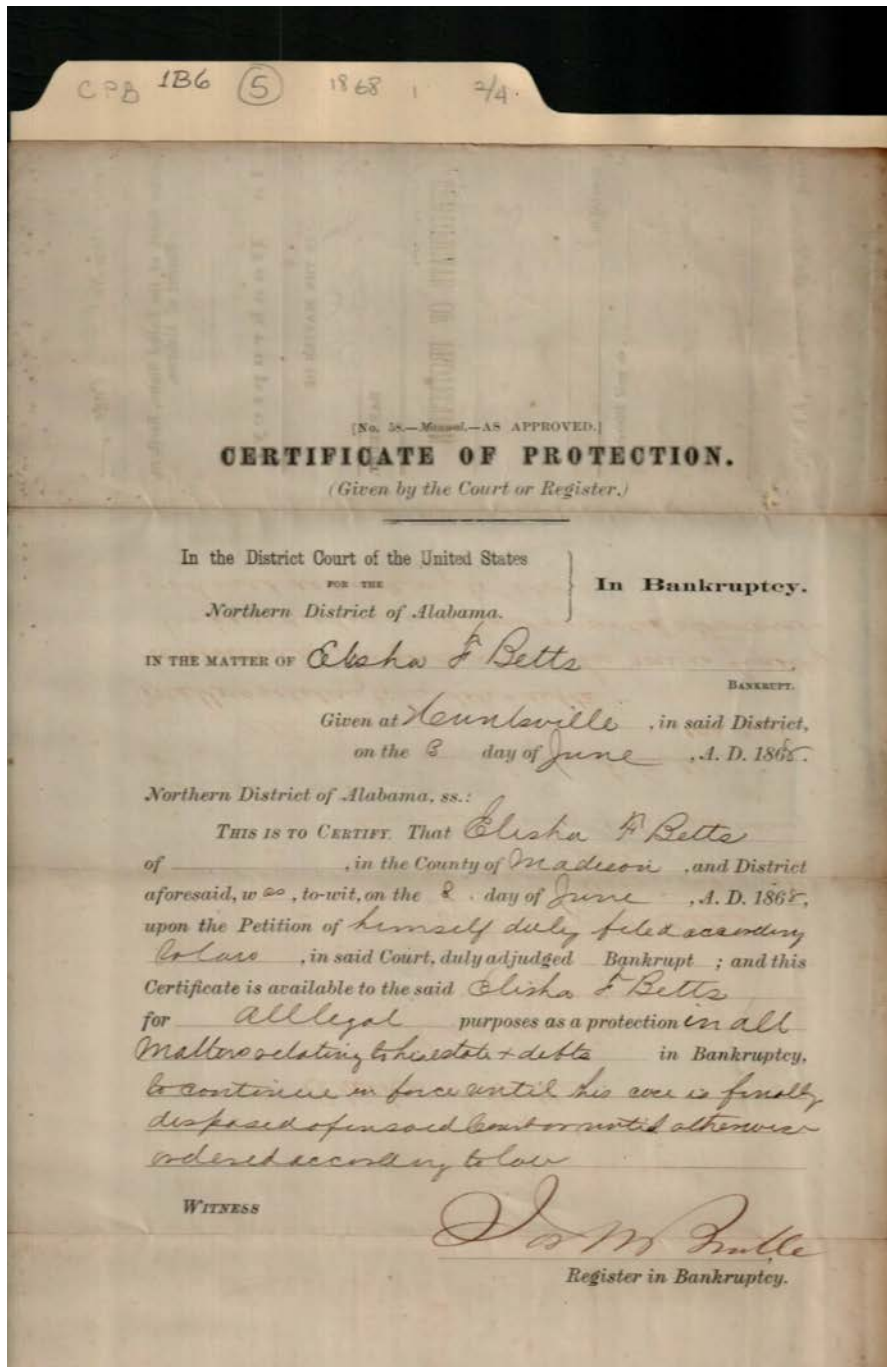 CPB 1B6 5 1868 1 2/4.
[No. 58.—Manual.—AS APPROVED.]
CERTIFICATE OF PROTECTION.
(Given by the Court or Register.)
In the District Court of the United States
FOR THE
Northern District of Alabama.
In Bankruptcy.
IN THE MATTER OF Elisha F Betts
BANKRUPT.
Given at Huntsville, in said District,
on the 8 day of June, A. D. 1868.
Northern District of Alabama, ss.:
THIS IS TO CERTIFY. That Elisha F Betts
of , in the County of Madison, and District
aforesaid, was, to-wit, on the 8 day of June, A. D. 1868,
upon the Petition of himself duly filed according
to law, in said Court, duly adjudged Bankrupt ; and this
Certificate is available to the said Elisha F Betts
for all legal purposes as a protection in all
Matters relating to his estate + debts in Bankruptcy,
to continue in force until his case is finally
disposed of in said Court or until otherwise
ordered according to law
WITNESS
Register in Bankruptcy.